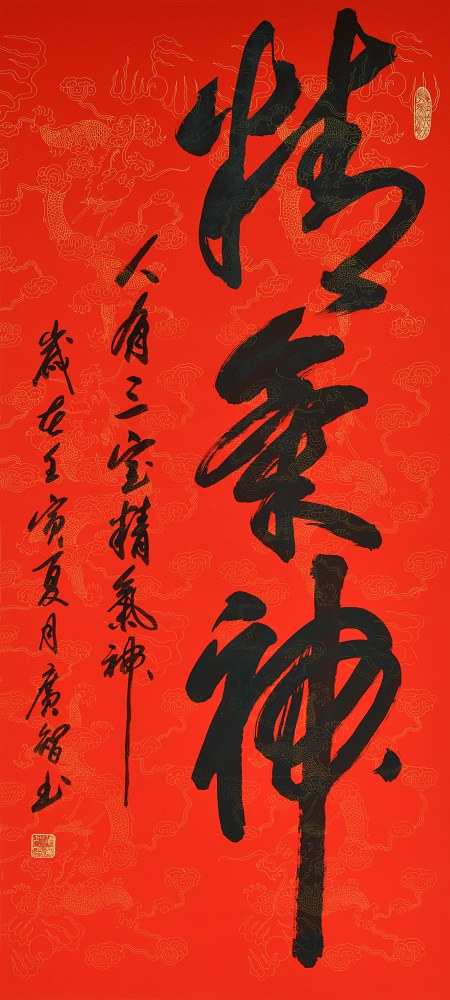 精氣神
人有三宝精氣神
歲在壬寅夏月廣智书